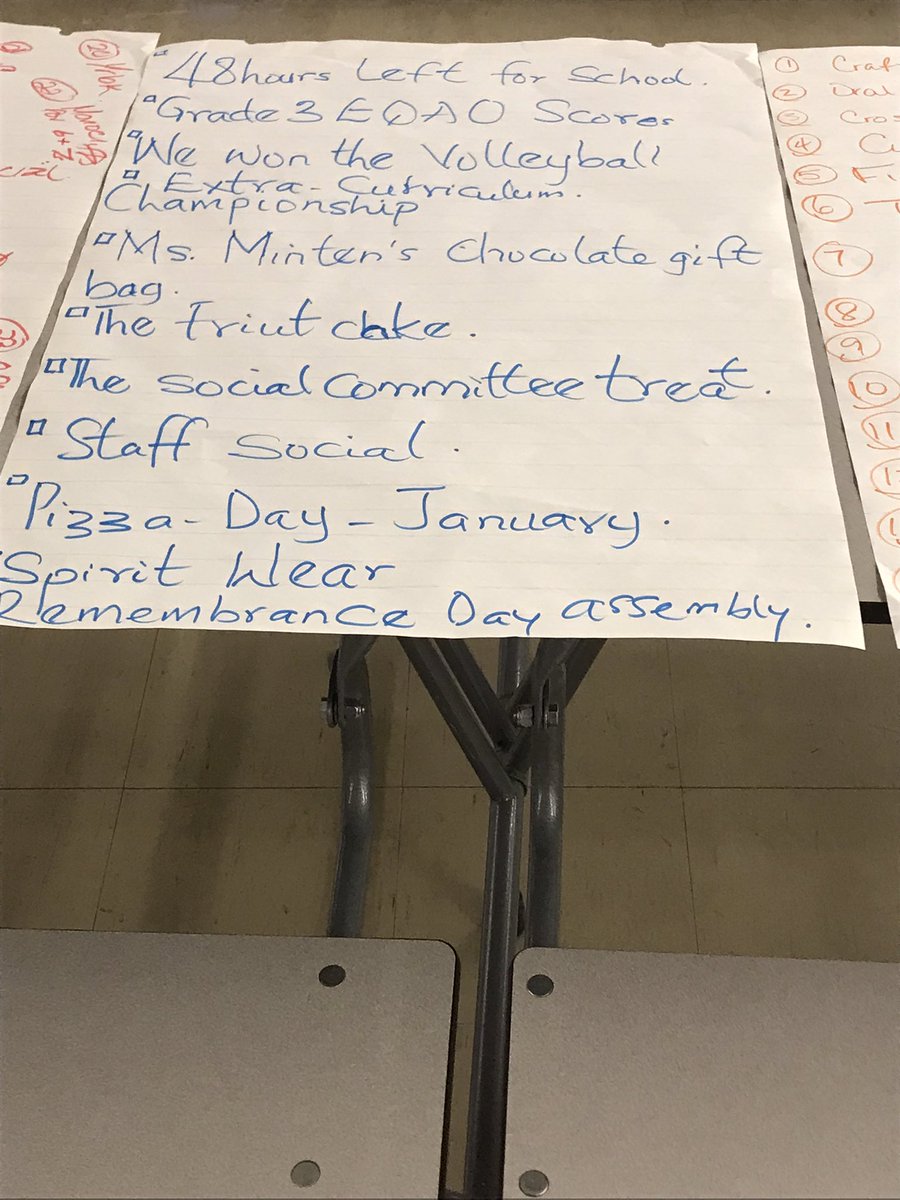 48 hours Left for School.
Grade 3 EQAO Scores
We won the Volleyball
Extra-Curriculum.
Championship
Ms. Minten's Chocolate gift
bag.
The Friut cake.
The Social Committee treat.
Staff Social.
Pizza-Day-January.
Spirit Wear
Remembrance Day assembly.
1
2
3
4
5
6
7
8
9
10
11